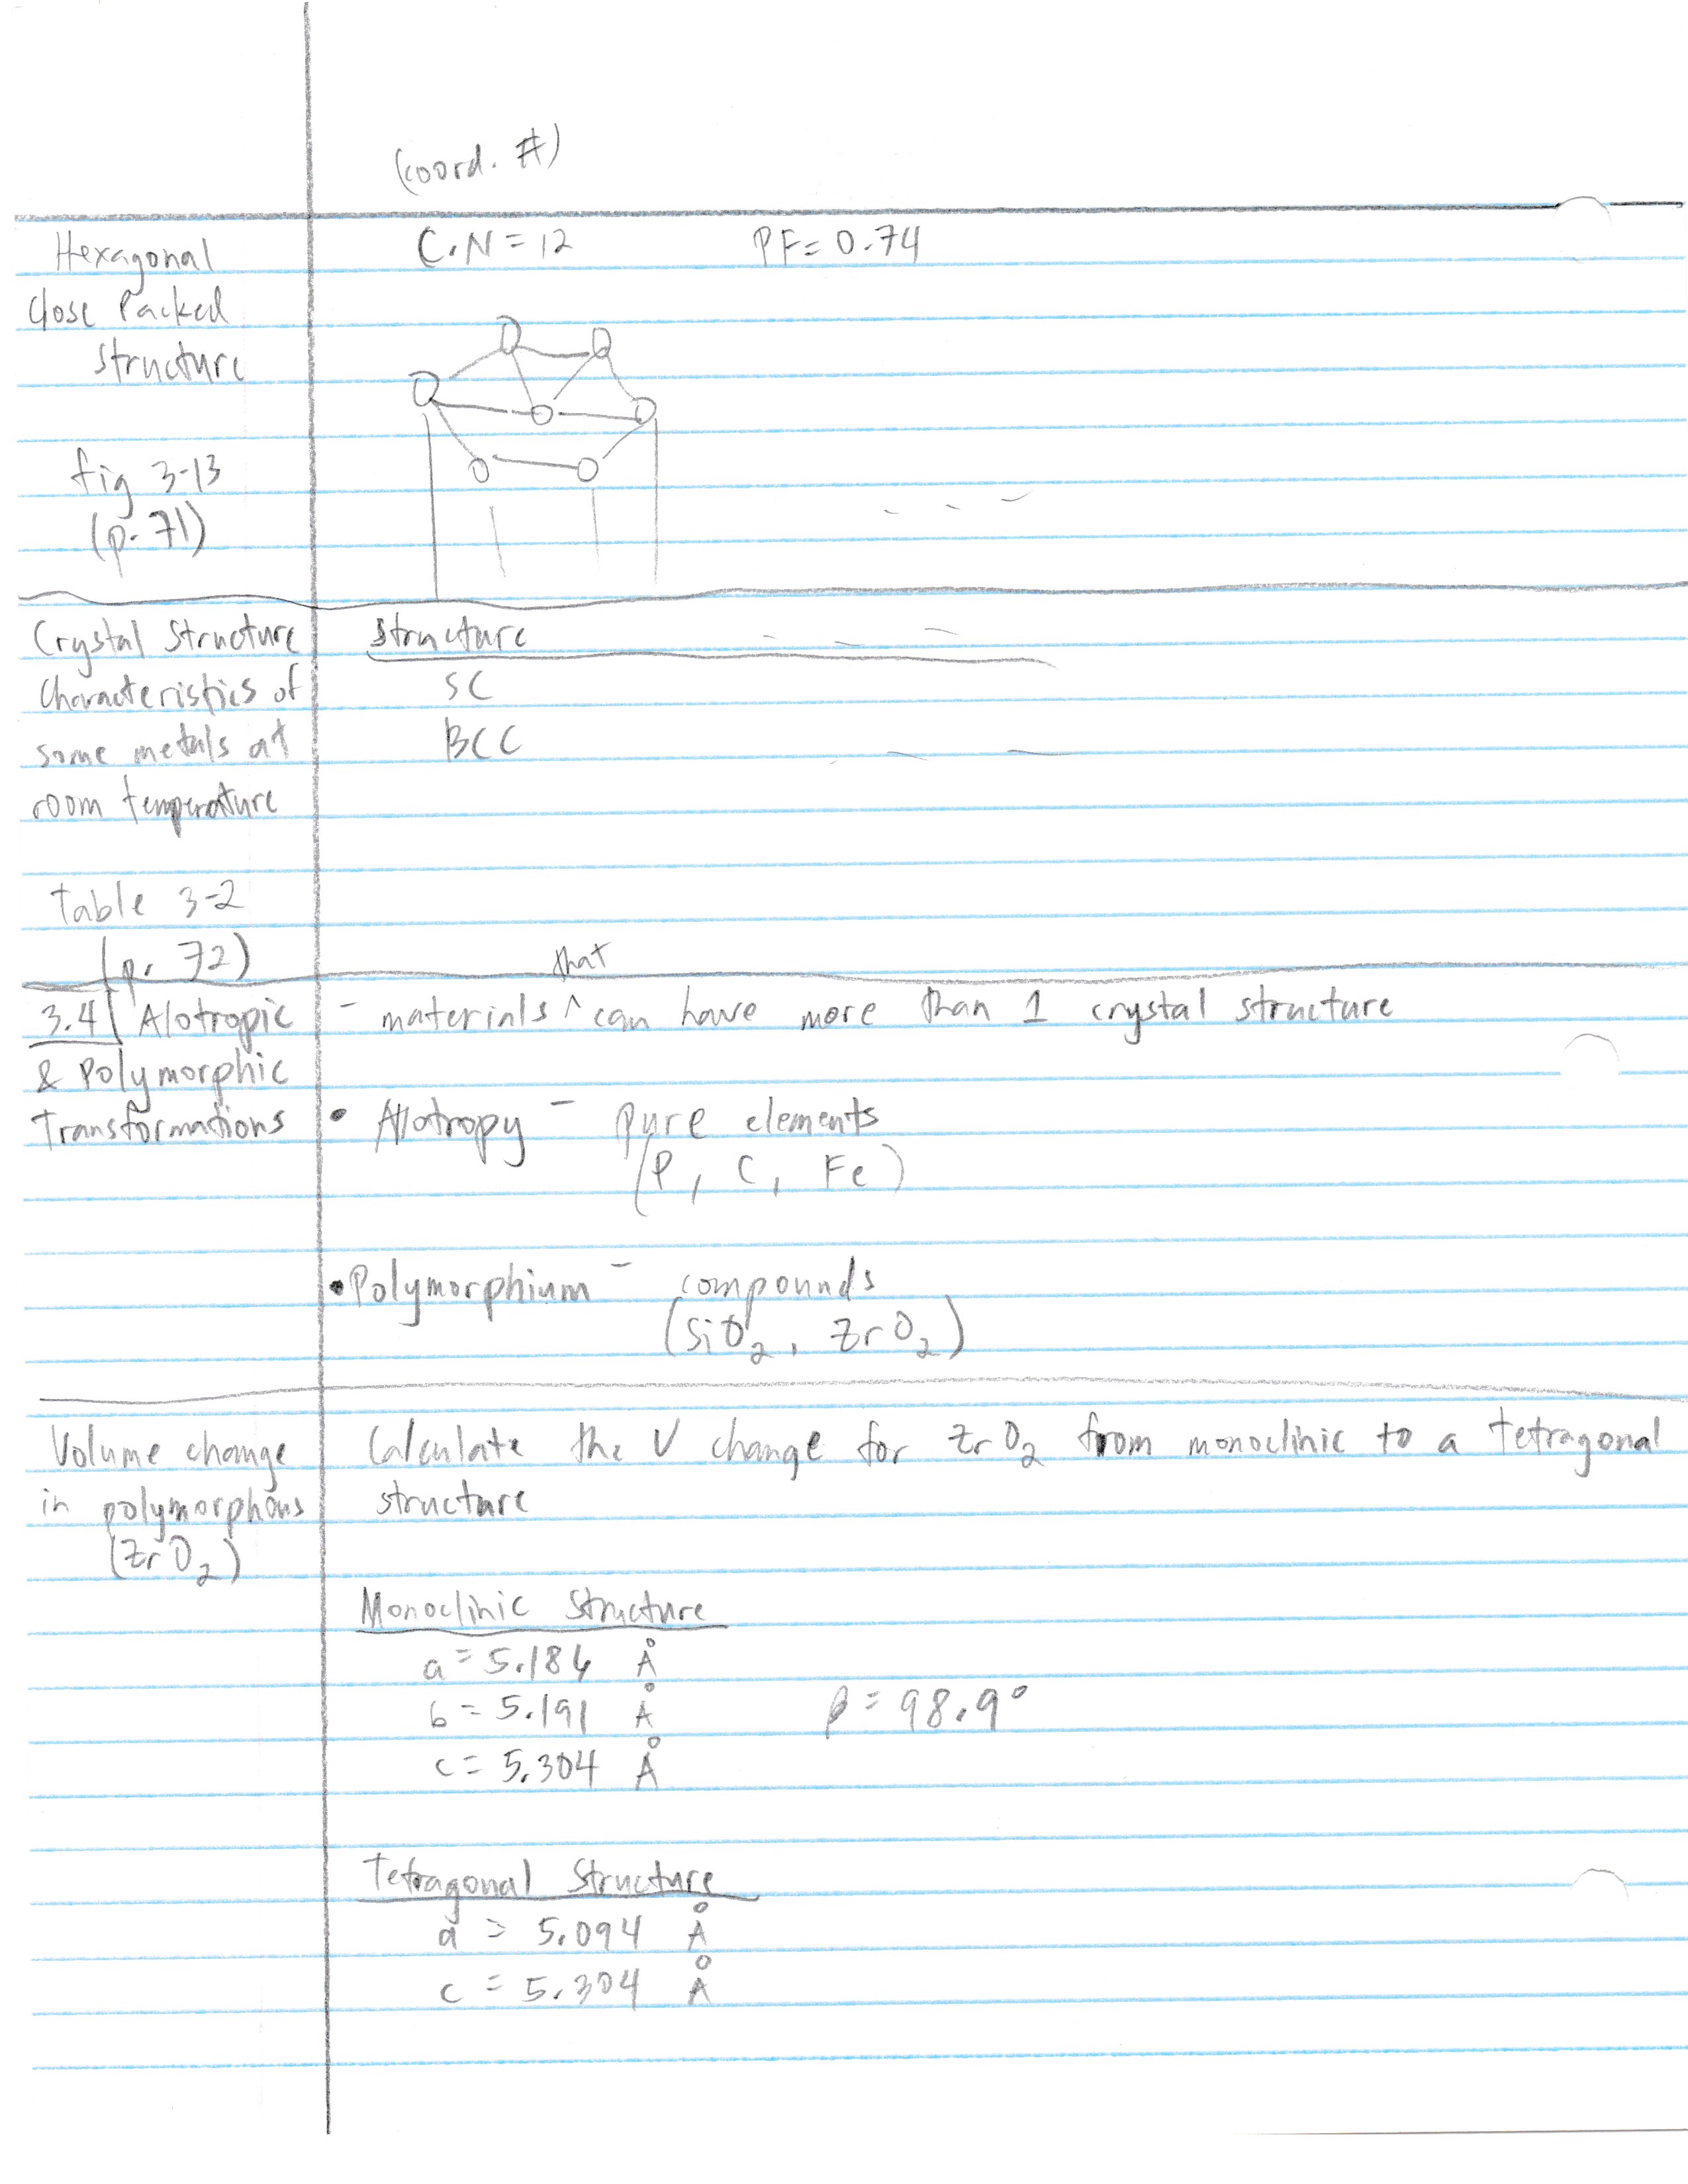 (coord. #)
Hexagonal
Close Packed
Structure
C.N = 12 PF = 0.74
fig 3-13
(p. 71)
Crystal Structure
Characteristics of
some metals at
room temperature
Table 3-2
(p. 72)
Structure
SC
BCC
3.4 Alotropic
& Polymorphic
Transformations
that
- materials ^ can have more than 1 crystal structure
• Alotropy - pure elements
(P, C, Fe)
• Polymorphium - compounds
(SiO2, ZrO2)
Volume change
in polymorphous
(ZrO2)
Calculate the V change for ZrO2 from monoclinic to a tetragonal
structure
Monoclinic Structure
a = 5.184 Å
b = 5.191 Å β = 98.9°
c = 5.304 Å
Tetragonal Structure
a = 5.094 Å
c = 5.304 Å